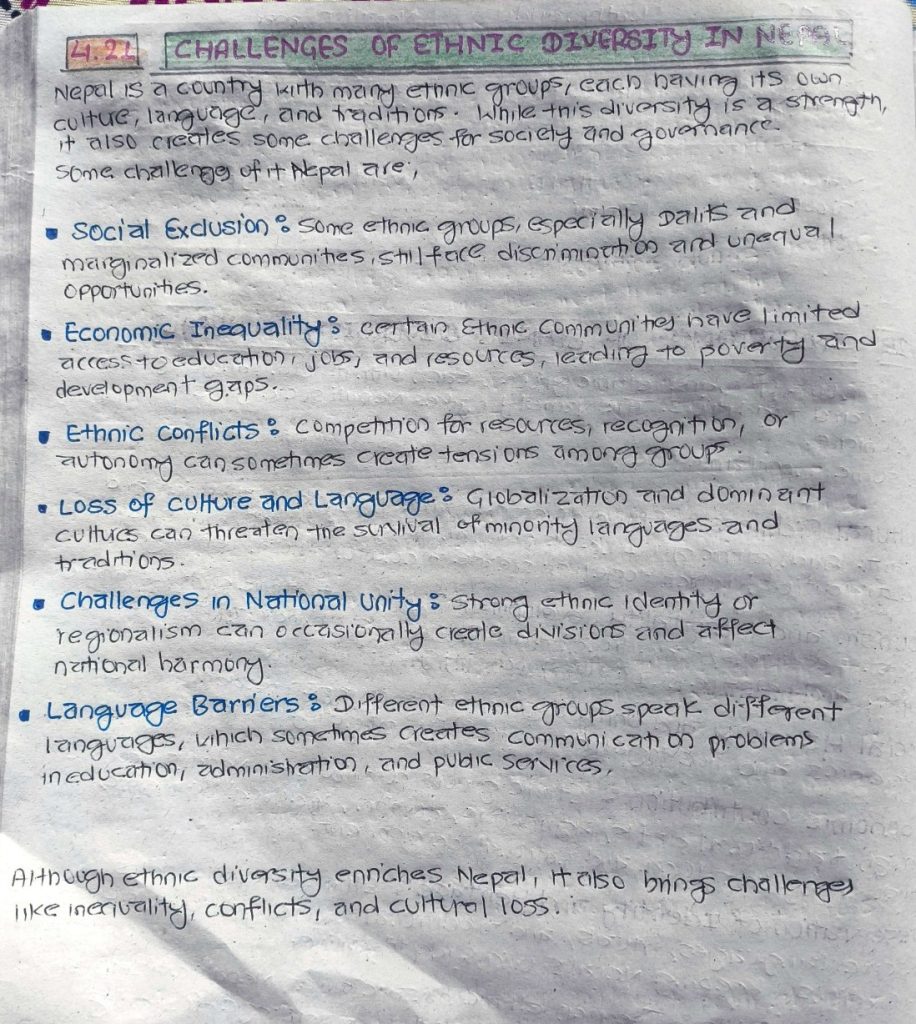 4.2.2 CHALLENGES OF ETHNIC DIVERSITY IN NEPAL
Nepal is a country with many ethnic groups, each having its own
culture, language, and traditions. While this diversity is a strength,
it also creates some challenges for society and governance.
Some challenges of it Nepal are;
▪ Social Exclusion: Some ethnic groups, especially Dalits and
marginalized communities, still face discrimination and unequal
opportunities.
▪ Economic Inequality: Certain Ethnic Communities have limited
access to education, jobs, and resources, leading to poverty and
development gaps.
▪ Ethnic Conflicts: Competition for resources, recognition, or
autonomy can sometimes create tensions among groups.
▪ Loss of culture and Language: Globalization and dominant
cultures can threaten the survival of minority languages and
traditions.
▪ Challenges in National Unity: Strong ethnic identity or
regionalism can occasionally create divisions and affect
national harmony.
▪ Language Barriers: Different ethnic groups speak different
languages, which sometimes creates communication problems
in education, administration, and public services.
Although ethnic diversity enriches Nepal, it also brings challenges
like inequality, conflicts, and cultural loss.